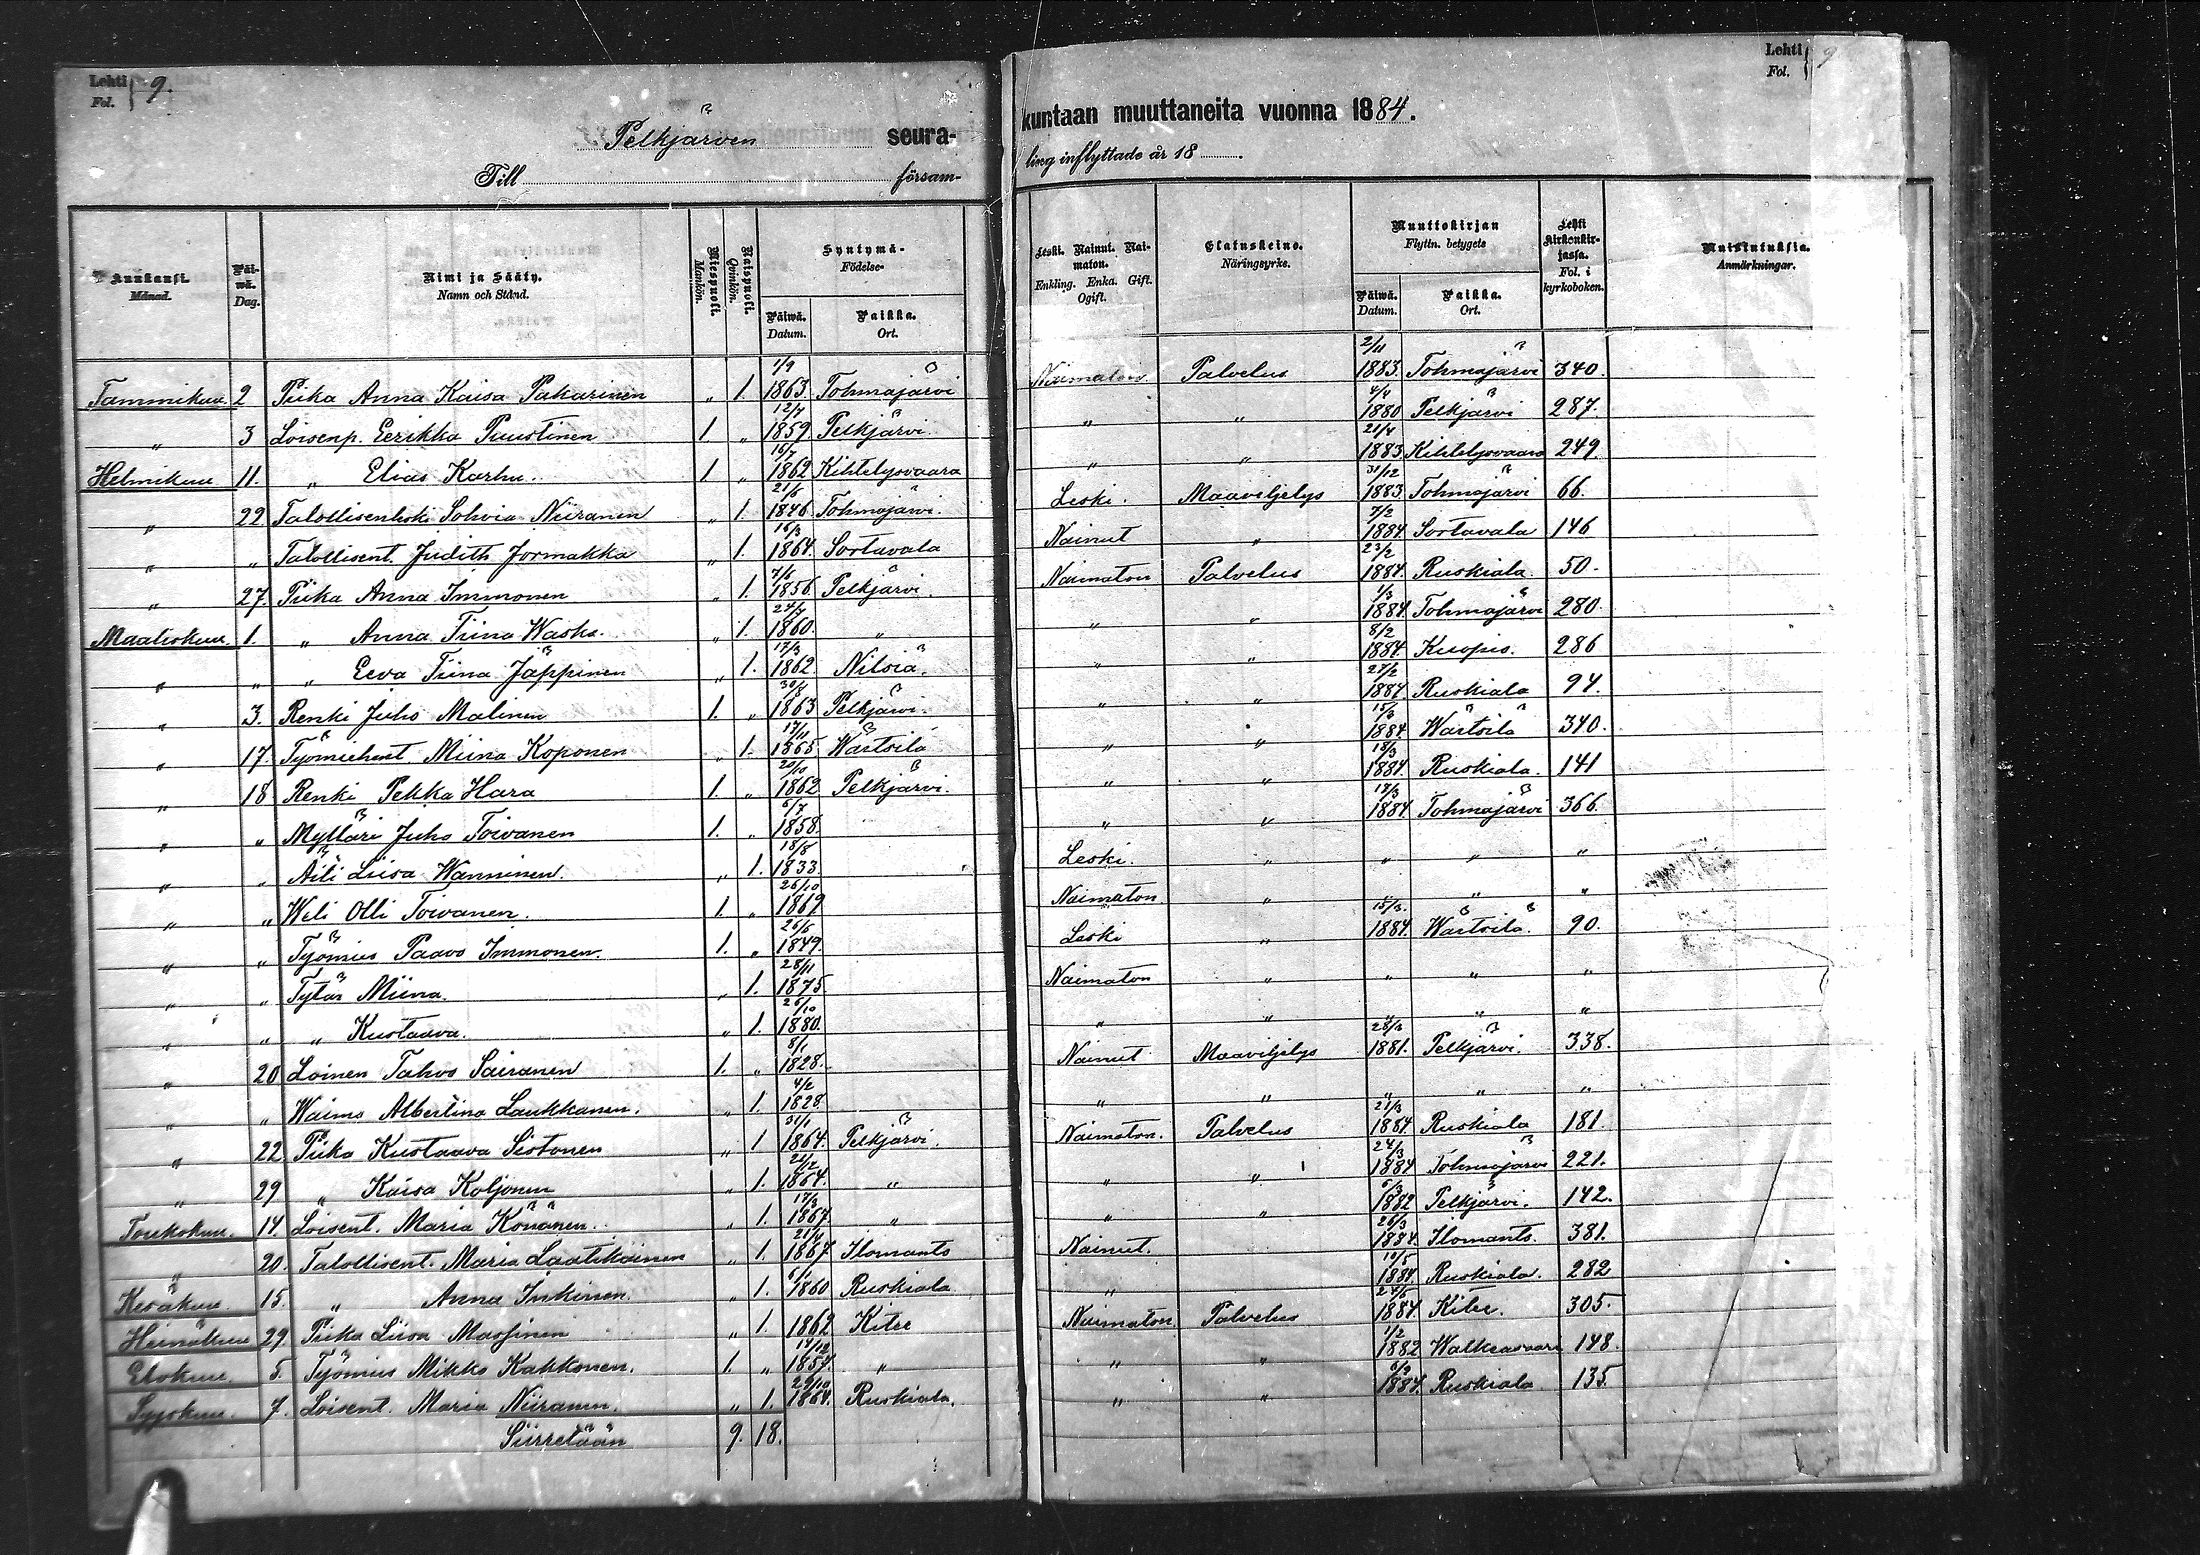 Lehti Fol. 9.
Pelkjärven seura-
Till försam-
Kuukausi. Månad. Päi-wä. Dag. Nimi ja Sääty. Namn och Stånd. Miespuoli. Mankön. Naispuoli. Qvinkön. Syntymä- Födelse- Päiwä. Datum. Paikka. Ort.
Tammikuu. 2 Piika Anna Kaisa Pakarinen „ 1. 1/9 1863. Tohmajärvi
„ 3 Loisenp. Eerikka Puustinen 1 „ 12/7 1859. Pelkjärvi.
Helmikuu 11. „ Elias Karhu. 1 „ 16/7 1862 Kihtelysvaara
„ 22 Talollisenleski Sohvia Niiranen „ 1. 21/6 1846. Tohmajärvi.
„ „ Talollisent. Judith Jormakka „ 1. 16/3 1864. Sortavala
„ 27. Piika Anna Immonen „ 1. 1856. Pelkjärvi.
Maaliskuu. 1. „ Anna Tiina Wasko. „ 1. 24/7 1860. „
„ „ „ Eeva Tiina Jäppinen „ 1. 17/3 1862. Nilsiä.
„ 3. Renki Juho Malinen 1. „ 30/8 1863 Pelkjärvi.
„ 17. Työmiehent. Miina Koponen „ 1. 17/11 1865. Wärtsilä
„ 18 Renki Pekka Hara 1. „ 20/10 1862 Pelkjärvi.
„ „ Mylläri Juho Toivanen 1. „ 6/7 1858.
„ „ Äiti Liisa Wanninen. „ 1. 18/8 1833
„ „ Weli Olli Toivanen. 1. „ 26/10 1869
„ „ Työmies Paavo Immonen. 1. „ 26/5 1849.
„ „ Tytär Miina. „ 1. 28/11 1875
„ „ „ Kustaava. „ 1. 26/10 1880.
„ 20 Loinen Tahvo Sairanen 1. „ 8/1 1828.
„ „ Waimo Albertina Laukkanen. „ 1. 4/2 1828.
„ 22. Piika Kustaava Sistonen „ 1 31/1 1864. Pelkjärvi.
„ 29 „ Kaisa Koljonen „ 1. 21/12 1864. „
Toukokuu. 14. Loisent. Maria Könönen. „ 1. 17/3 1867. „
„ 20. Talollisent. Maria Laatikainen „ 1. 21/4 1867. Ilomants
Kesäkuu. 15. „ Anna Inkinen. „ 1. 1860 Ruskiala
Heinäkuu 29. Piika Liisa Massinen „ 1. 1862 Kitee
Elokuu. 5. Työmies Mikko Kakkonen. 1. „ 14/12 1857. „
Syyskuu. 7. Loisent. Maria Niiranen. „ 1. 29/10 1864. Ruskiala.
Siirretään 9. 18.
Lehti Fol. 9
kuntaan muuttaneita vuonna 1884.
ling inflyttade år 18
Leski. Nainut. Nai-maton. Enkling. Enka. Gift. Ogift. Elatuskeino. Näringsyrke. Muuttokirjan Flyttn. betygets Päiwä. Datum. Paikka. Ort. Lehti kirkonkir-jassa. Fol. i kyrkoboken. Muistutuksia. Anmärkningar.
Naimaton Palvelus 2/11 1883. Tohmajärvi 340.
„ „ 4/4 1880 Pelkjärvi 287.
„ „ 21/4 1883 Kihtelysvaara 249.
Leski. Maaviljelys 31/12 1883 Tohmajärvi 66.
Nainut „ 7/2 1884. Sortavala 146
Naimaton Palvelus 23/2 1884. Ruskiala. 50.
„ „ 1/3 1884. Tohmajärvi 280.
„ „ 8/2 1884. Kuopio. 286
„ „ 27/2 1884. Ruskiala 94.
„ „ 15/3 1884. Wärtsilä 340.
„ „ 18/3 1884. Ruskiala. 141
„ „ 18/3 1884. Tohmajärvi 366.
Leski. „ „ „ „
Naimaton. „ „ „
Leski „ 15/3. 1884. Wärtsilä. 90.
Naimaton „ „ „ „
„ „ „ „ „
Nainut Maaviljelys 28/3 1881. Pelkjärvi. 338.
„ „ „ „ „
Naimaton. Palvelus 21/3 1884. Ruskiala 181.
„ „ 24/3 1884 Tohmajärvi 221.
„ „ 6/3 1882 Pelkjärvi. 142.
Nainut. 26/3 1884. Ilomants. 381.
„ 10/5 1884. Ruskiala. 282
Naimaton Palvelus 1884. Kitee. 305.
„ „ 1/2 1882 Walkeasaari 148.
„ „ 6/9 1884. Ruskiala 135.